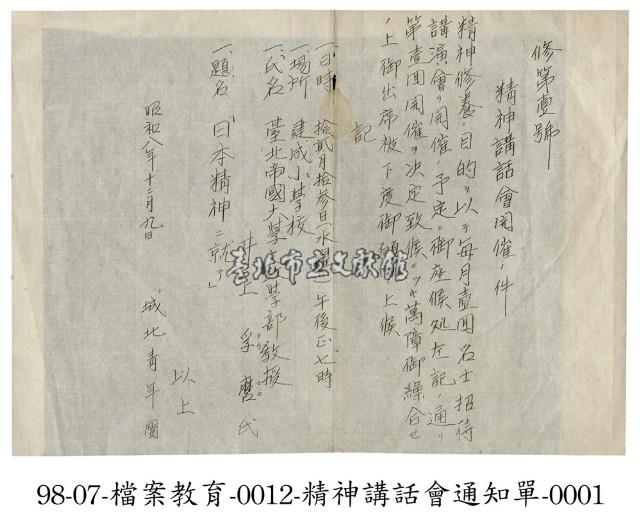 修第壹號
精神講話會開催ノ件
精神修養ノ目的ヲ以テ毎月壹囬名士招待
講演會ヲ開催ノ予定ニ御座候処左記ノ通リ
第壹囬開催ヲ決定致候ニツキ萬障御繰合セ
ノ上御出席被下度御願上候
記
一、日時 拾貳月拾參日(水曜)午後正七時
一、場所 建成小學校
一、氏名 臺北帝國大學 學部教授
井上 孚麿氏
一、題名 「日本精神ニ就テ」
以上
昭和八年十二月九日
城北青年團
臺北市立文獻館
98-07-檔案教育-0012-精神講話會通知單-0001